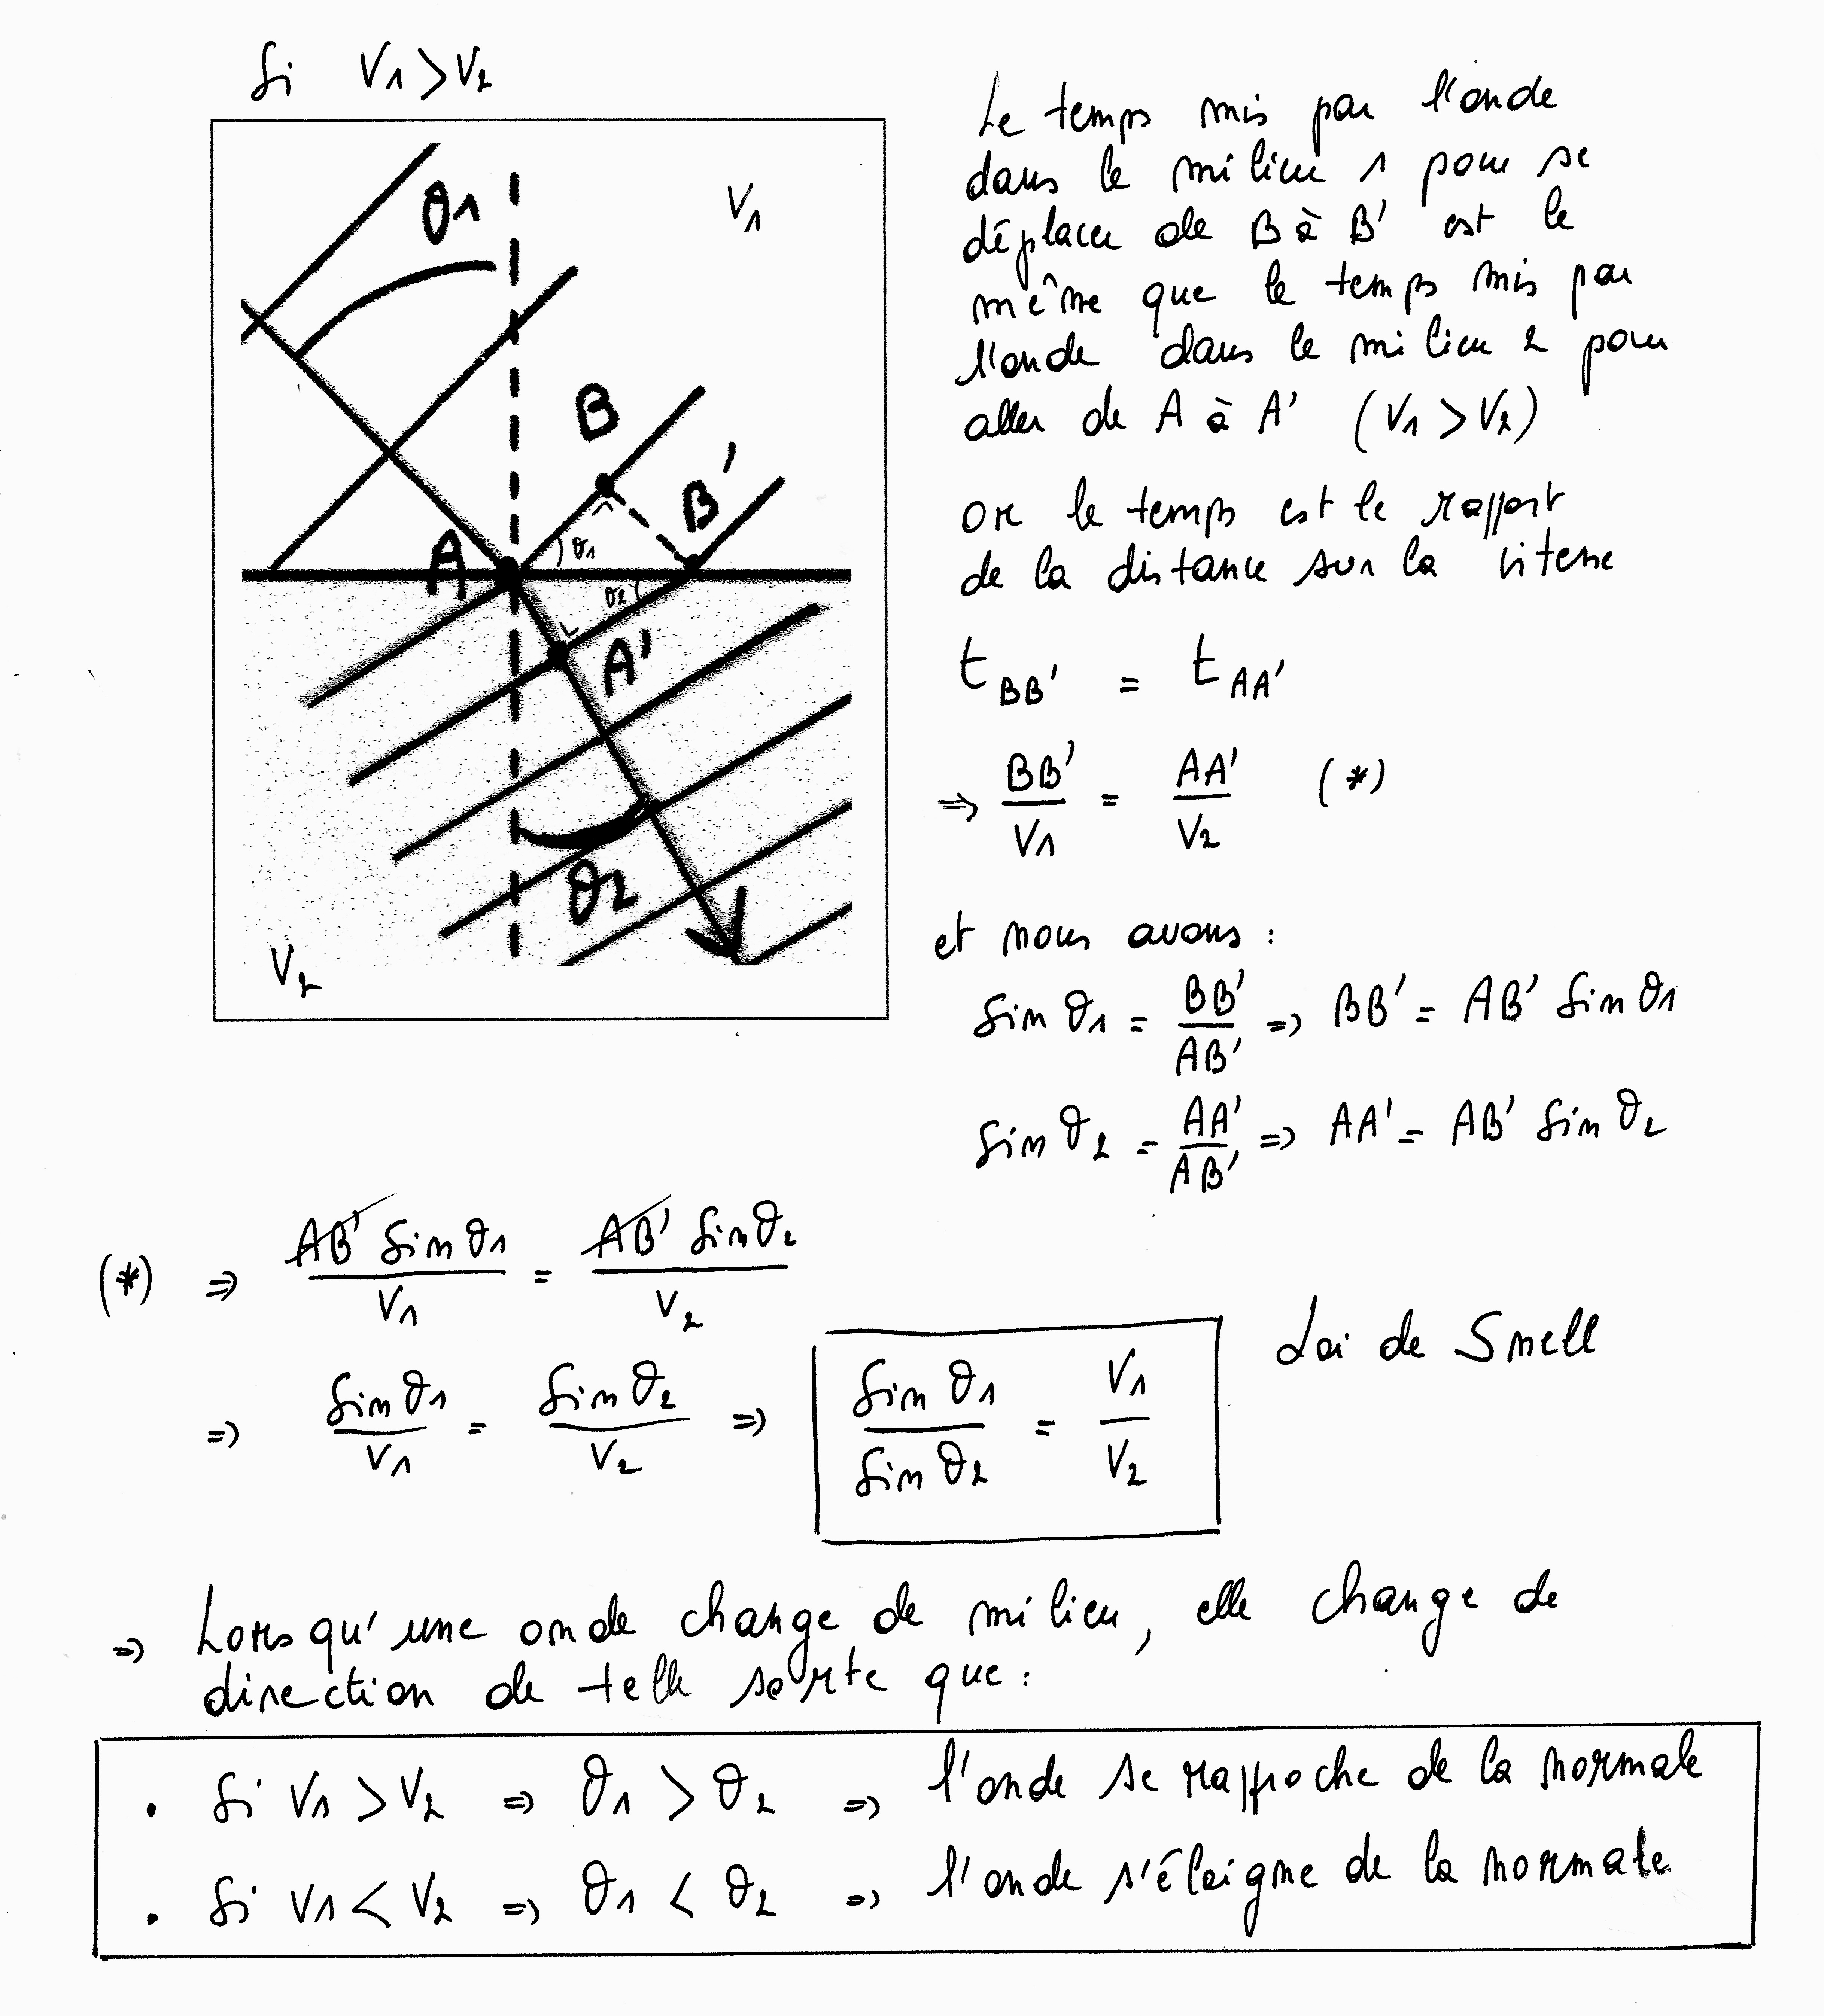 Si V1 > V2
θ1
V1
B
B'
A
θ1
θ2
A'
θ2
V2
Le temps mis par l'onde
dans le milieu 1 pour se
déplacer de B à B' est le
même que le temps mis par
l'onde dans le milieu 2 pour
aller de A à A' (V1 > V2)
or le temps est le rapport
de la distance sur la vitesse
t BB' = t AA'
⇒ BB'/V1 = AA'/V2 (*)
et nous avons :
Sin θ1 = BB'/AB' ⇒ BB' = AB' Sin θ1
Sin θ2 = AA'/AB' ⇒ AA' = AB' Sin θ2
(*) ⇒ AB' Sin θ1/V1 = AB' Sin θ2/V2
⇒ Sin θ1/V1 = Sin θ2/V2 ⇒ Sin θ1/Sin θ2 = V1/V2 Loi de Snell
⇒ Lorsqu'une onde change de milieu, elle change de
direction de telle sorte que :
• Si V1 > V2 ⇒ θ1 > θ2 ⇒ l'onde se rapproche de la normale
• Si V1 < V2 ⇒ θ1 < θ2 ⇒ l'onde s'éloigne de la normale